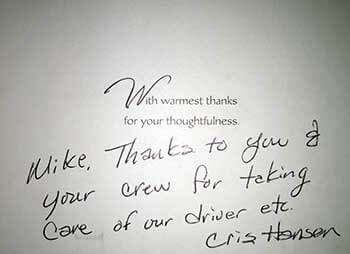 With warmest thanks
for your thoughtfulness.
Mike, Thanks to you &
your crew for taking
Care of our driver etc.
Cris Hansen